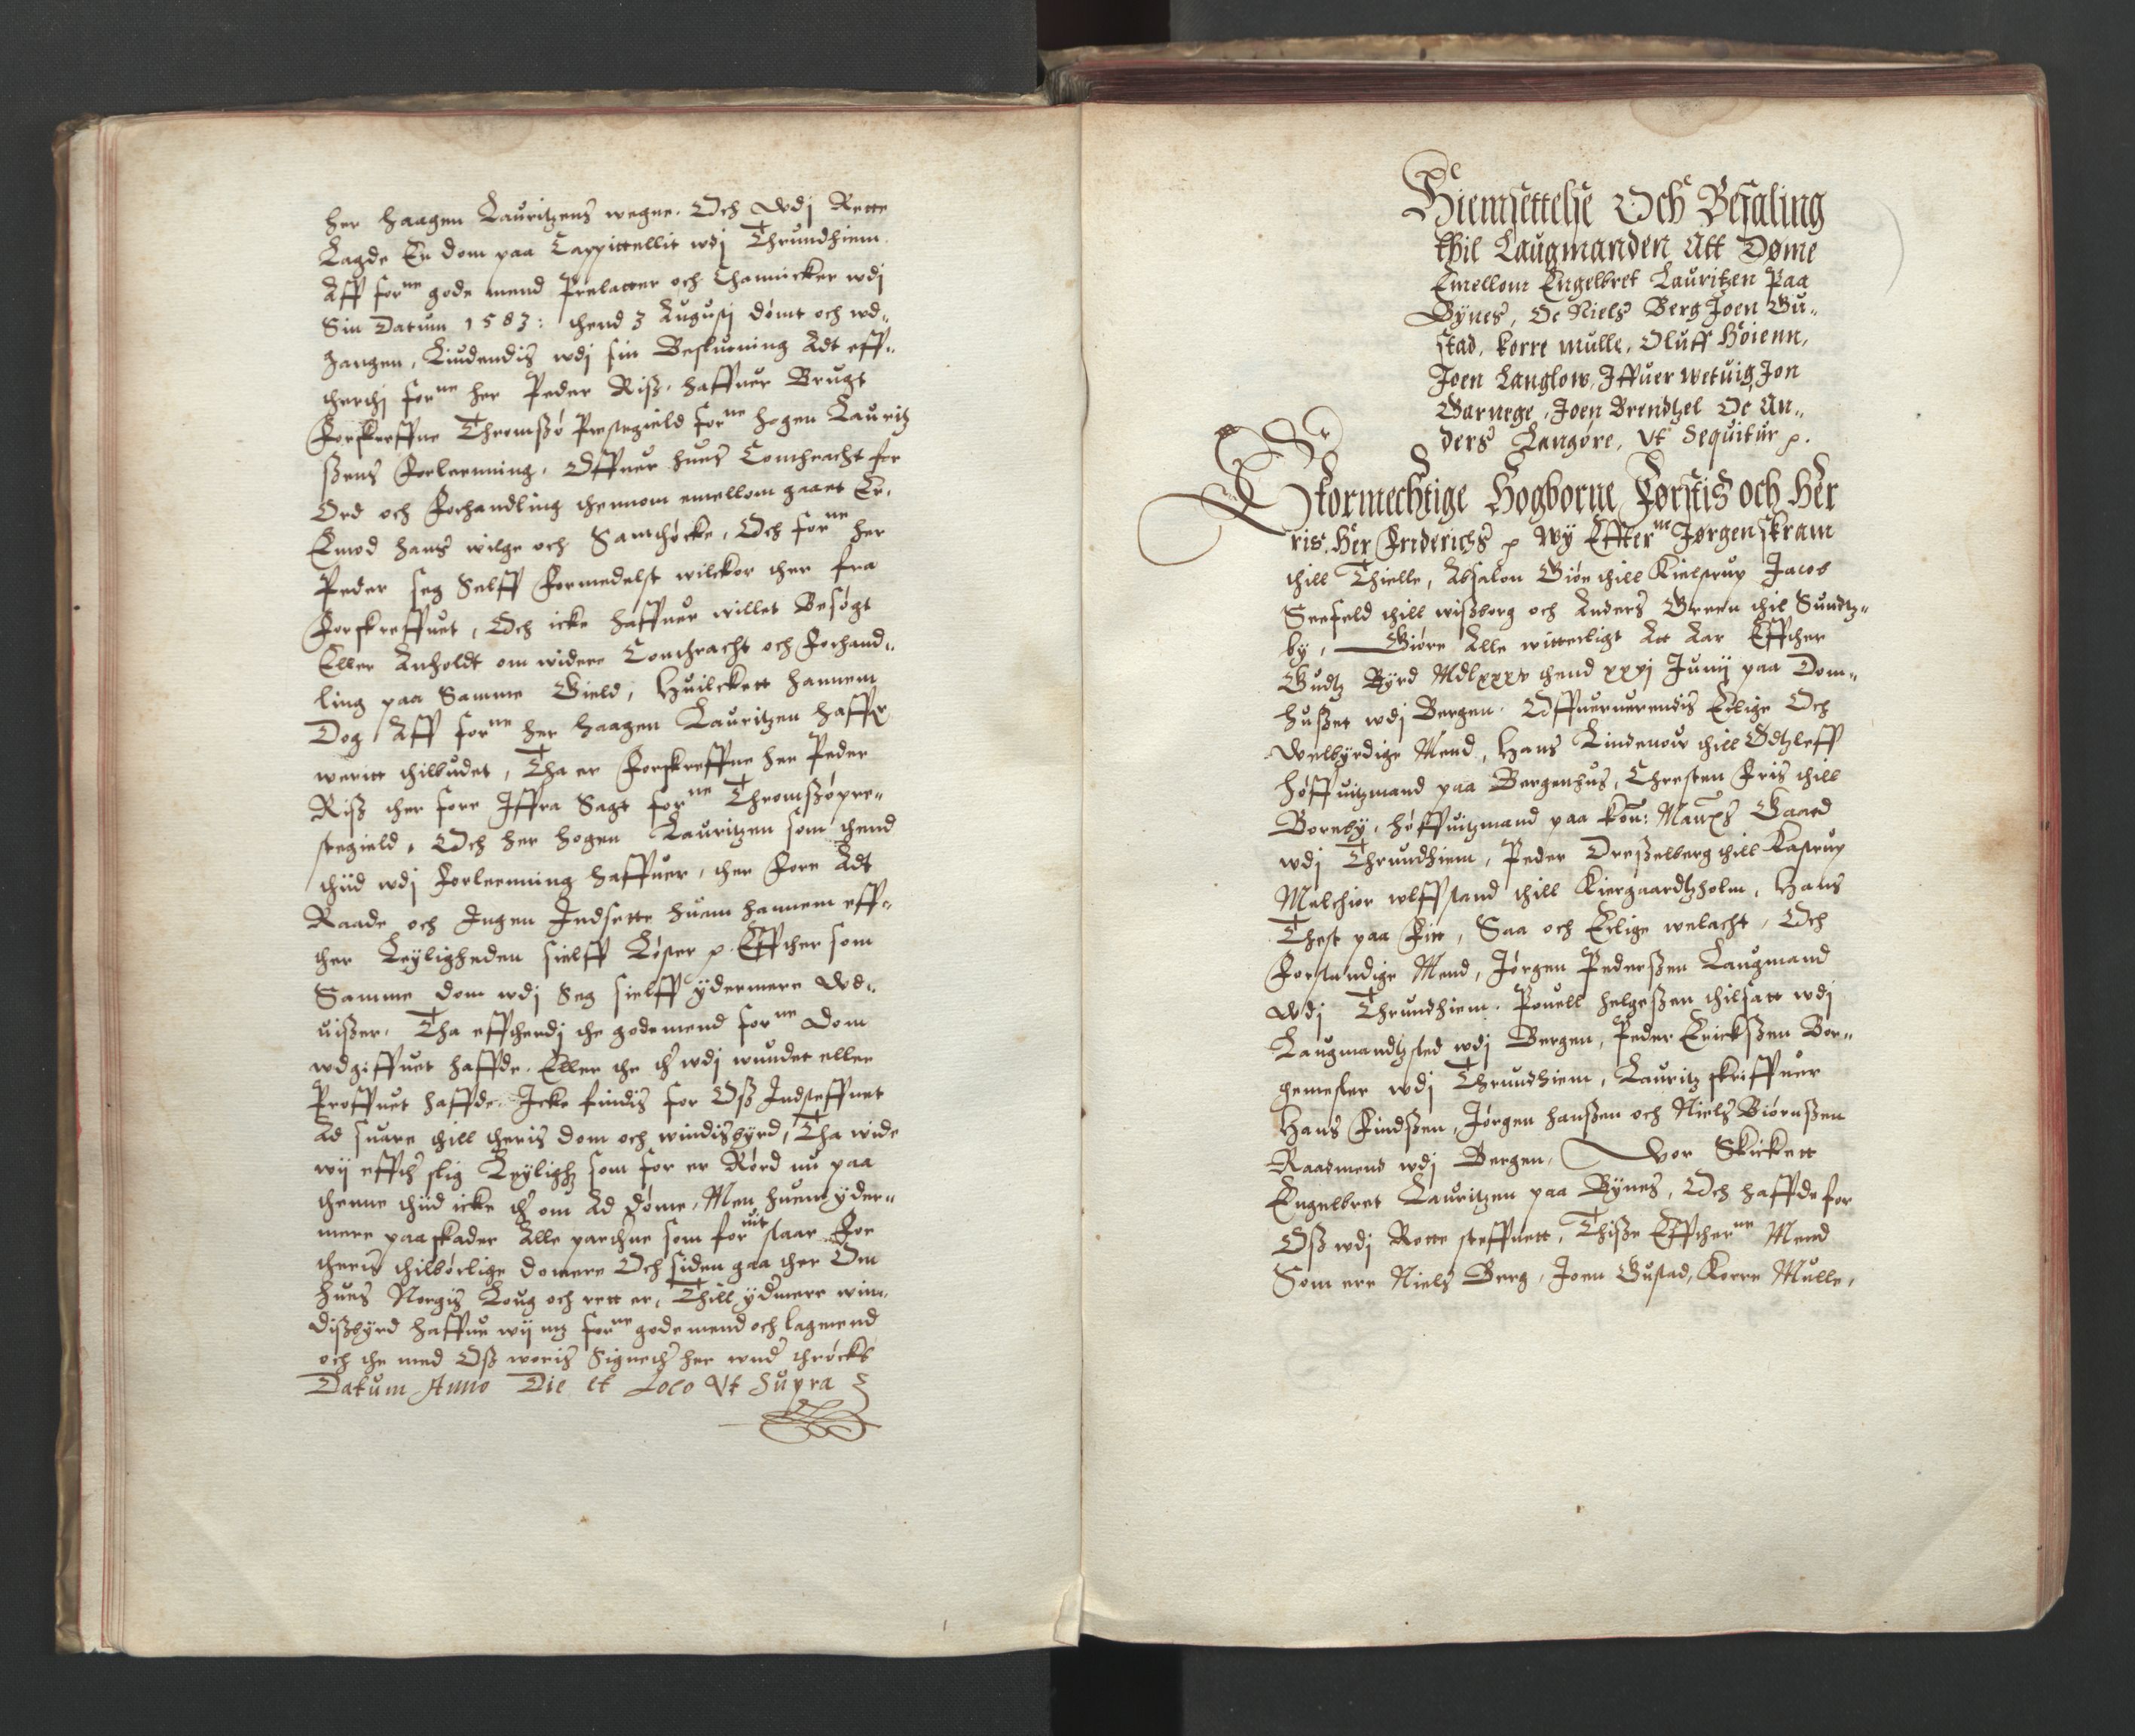 her Haagen Lauritzens wegne. Och wdj Rette
Lagde En dom paa Cappittellit wdj Thrundhiem
Aff forne gode mend Prelatter och Channicker wdj
Sin Datum 1583: thend 3 Augustj dømt och wd„
gangen, Liudendis wdj sin Beslutning Adt eff„
therthj forne her Peder Riiß, haffuer Brugt
Forskreffne Thromßø Prestegield forne Hogen Lauritz
ßens Forleenning, Offuer hues Conthracht for
Ord och Forhandling thennom emellom gaaet Er,
Emod hans wilge och Samthøcke, Och forne her
Peder seg Selff Formedelst wilckor ther fra
Forskreffuet, Och icke haffuer willet Besøgt
Eller Anholdt om widere Conthracht och Forhand„
ling paa Samme Gield, Huilckett hannem
Dog Aff forne her Haagen Lauritzen haffr
weritt thilbudet, Tha er Forskreffne her Peder
Riß ther fore Iffra Sagt forne Thromßøpre„
stegield, Och her Hogen Lauritzen som thend
thiid wdj Forleenning haffuer, ther Fore Adt
Raade och Ingen Indsette huem hannem eff„
ther Leyligheden sielff Løster p. Effther som
Samme dom wdj Seg sielff ÿdermere Wd„
uißer, Tha efftherdj the godemend forne Dom
wdgiffuet haffde, Eller the th wdj wundet eller
Prøffuet haffde, Icke findis for Oß Indsteffnet
Ad suare thill theris dom och windisbÿrd, Tha wide
wij effth slig Leÿlighz som for er Rørd nu paa
thenne thiid icke th om Ad Døme, Men huem ÿder„
mere paaskader Alle parthne som foruitt staar For
theris thilbørlige domere Och siden gaa ther Om
hues Norgis Loug och rett er, Thill ÿdmere win„
dißbÿrd haffue wij mz forne godemend och lagmend
och the med Oß woris Signeth her wnd thrøckt
Datum Anno Die et Loco Vt Supra
Hiemsettelse Och Befaling
thil Laugmanden Att Døme
Emellom Engelbret Lauritzen Paa
Bÿnes, Oc Niels Berg Joen Gu„
stad, Korre Mulle, Oluff Høienn,
Joen Langlow, Iffuer wetuig, Jon
Garnege, Joen Brendtzel Oc An„
ders Langøre, Vt Sequitur p.
Stormechtige Hogborne Førstis och Her
ris, Her Friderichs p Wÿ Effterne Jørgen skram
thill Thielle, Absalon Giøe thill Kielstrup Jacob
Seefeld thill wißborg och Anders Green thil Sundtz„
by, Giøre Alle witterligt Att Aar Effther
Gudtz Bÿrd Mdlxxxv thend xxxj Junij paa Dom„
hußet wdj Bergen, Offueruerendis Erlige Och
Welbÿrdige Mend, Hans Lindenow thill Ødtzleff
høffuitzmand paa Bergenhus, Chresten Fris thill
Borreby, høffuitzmand paa Kon: Mautts Gaard
wdj Thrundhiem, Peder Dreßelberg thill Kastrup
Melchior wlffstand thill Kiergaardtzholm, Hans
Thest paa Fitt, Saa och Erlige welacht, Och
Forstandige Mend, Jørgen Pederßen Laugmand
Wdj Thrundhiem, Pouell Helgeßen thilsatt wdj
Laugmandtzsted wdj Bergen, Peder Erickßen Bor„
gemester wdj Thrundhiem, Lauritz skriffuer
Hans Findßen, Jørgen Hanßen och Niels Biørnßen
Raadmend wdj Bergen, Wor Skickett
Engelbret Lauritzen paa Bÿnes, Och haffde for
Oß wdj Rette steffnett, Thiße Efftherne Mend
Som ere Niels Berg, Joen Gustad, Korre Mulle,